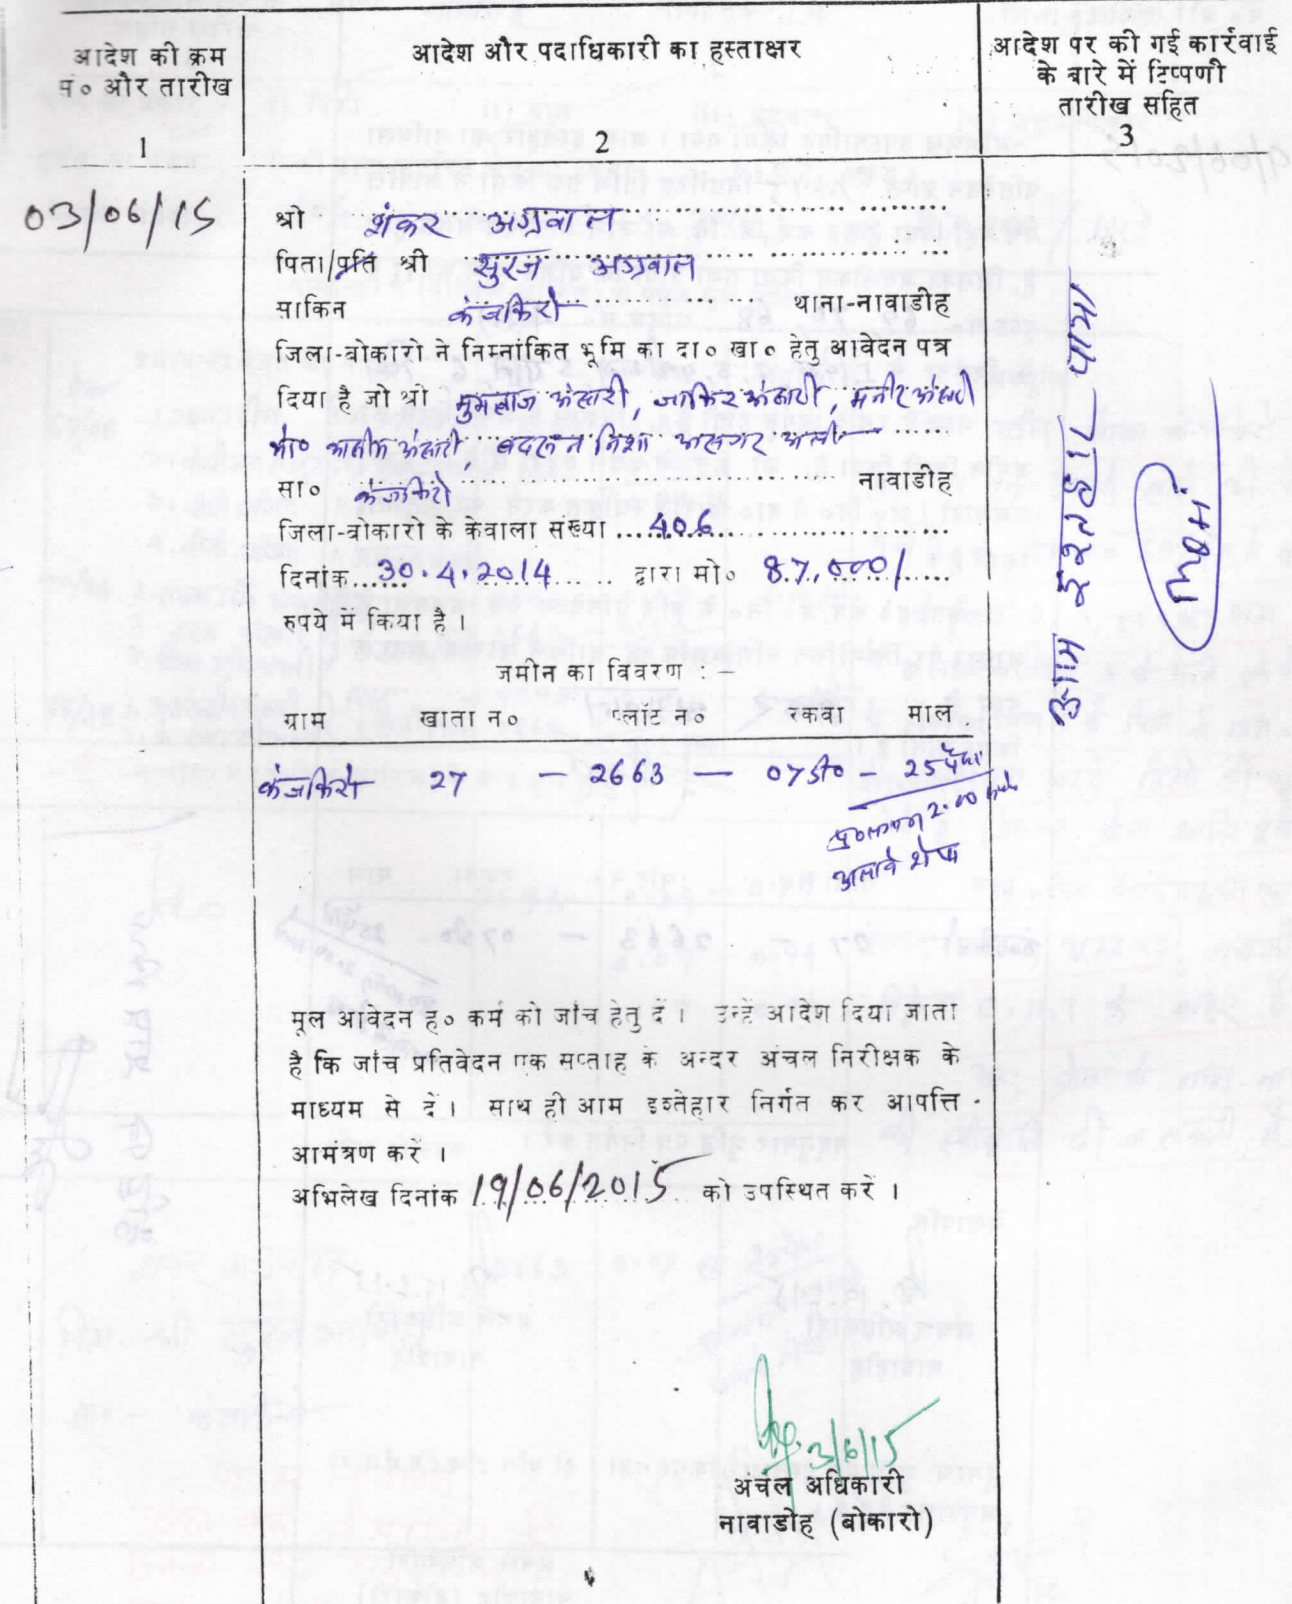 आदेश की क्रम
सं० और तारीख
आदेश और पदाधिकारी का हस्ताक्षर
आदेश पर की गई कार्रवाई
के बारे में टिप्पणी
तारीख सहित
1
2
3
03/06/15
श्री शंकर अग्रवाल
पिता/पति श्री सुरज अग्रवाल
साकिन कंजकिरो थाना-नावाडीह
जिला-बोकारो ने निम्नांकित भूमि का दा० खा० हेतु आवेदन पत्र
दिया है जो श्री मुमताज अंसारी, जाकिर अंसारी, मनीर अंसारी
अंसारी, असगर अली
सा० कंजकिरो नावाडीह
जिला-बोकारो के केवाला संख्या 406
दिनांक 30.4.2014 द्वारा मो० 87,000/
रुपये में किया है।
जमीन का विवरण :-
ग्राम खाता न० प्लॉट न० रकवा माल
कंजकिरो 27 - 2663 - 07डी० - 25 पैसा
2.00
अलावे शेष
मूल आवेदन ह० कर्म को जाँच हेतु दें। उन्हें आदेश दिया जाता
है कि जाँच प्रतिवेदन एक सप्ताह के अन्दर अंचल निरीक्षक के
माध्यम से दें। साथ ही आम इश्तेहार निर्गत कर आपत्ति
आमंत्रण करें।
अभिलेख दिनांक 19/06/2015 को उपस्थित करें।
3/6/15
अंचल अधिकारी
नावाडीह (बोकारो)
आम इश्तेहार